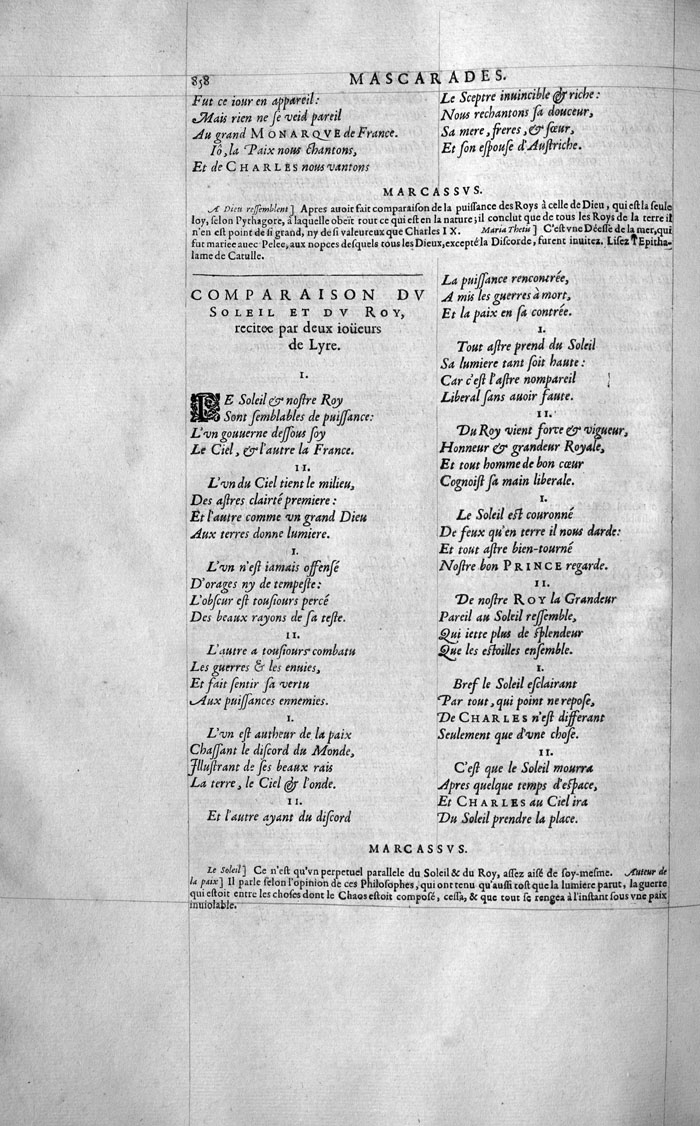 858
MASCARADES.
Fut ce iour en appareil:
Mais rien ne ſe veid pareil
Au grand MONARQVE de France.
Iô, la Paix nous chantons,
Et de CHARLES nous vantons
Le Sceptre inuincible & riche:
Nous rechantons ſa douceur,
Sa mere, freres, & ſœur,
Et ſon eſpouſe d'Auſtriche.
MARCASSVS.
A Dieu reſſemblent] Apres auoir fait comparaiſon de la puiſſance des Roys à celle de Dieu, qui eſt la ſeule
loy, ſelon Pythagore, à laquelle obeït tout ce qui eſt en la nature; il conclut que de tous les Roys de la terre il
n'en eſt point de ſi grand, ny de ſi valeureux que Charles IX. Maria Thetis] C'eſt vne Déeſſe de la mer, qui
fut mariee auec Pelee, aux nopces deſquels tous les Dieux, excepté la Diſcorde, furent inuitez. Liſez l'Epitha-
lame de Catulle.
COMPARAISON DV
SOLEIL ET DV ROY,
recitee par deux ioüeurs
de Lyre.
I.
LE Soleil & noſtre Roy
Sont ſemblables de puiſſance:
L'vn gouuerne deſſous ſoy
Le Ciel, & l'autre la France.
II.
L'vn du Ciel tient le milieu,
Des aſtres clairté premiere:
Et l'autre comme vn grand Dieu
Aux terres donne lumiere.
I.
L'vn n'eſt iamais offenſé
D'orages ny de tempeſte:
L'obſcur eſt touſiours percé
Des beaux rayons de ſa teſte.
II.
L'autre a touſiours combatu
Les guerres & les enuies,
Et fait ſentir ſa vertu
Aux puiſſances ennemies.
I.
L'vn eſt autheur de la paix
Chaſſant le diſcord du Monde,
Illuſtrant de ſes beaux rais
La terre, le Ciel & l'onde.
II.
Et l'autre ayant du diſcord
La puiſſance rencontrée,
A mis les guerres à mort,
Et la paix en ſa contrée.
I.
Tout aſtre prend du Soleil
Sa lumiere tant ſoit haute:
Car c'eſt l'aſtre nompareil
Liberal ſans auoir faute.
II.
Du Roy vient force & vigueur,
Honneur & grandeur Royale,
Et tout homme de bon cœur
Cognoiſt ſa main liberale.
I.
Le Soleil eſt couronné
De feux qu'en terre il nous darde:
Et tout aſtre bien-tourné
Noſtre bon PRINCE regarde.
II.
De noſtre ROY la Grandeur
Pareil au Soleil reſſemble,
Qui iette plus de ſplendeur
Que les eſtoilles enſemble.
I.
Bref le Soleil eſclairant
Par tout, qui point ne repoſe,
De CHARLES n'eſt differant
Seulement que d'vne choſe.
II.
C'eſt que le Soleil mourra
Apres quelque temps d'eſpace,
Et CHARLES au Ciel ira
Du Soleil prendre la place.
MARCASSVS.
Le Soleil] Ce n'eſt qu'vn perpetuel parallele du Soleil & du Roy, aſſez aiſé de ſoy-meſme. Auteur de
la paix] Il parle ſelon l'opinion de ces Philoſophes, qui ont tenu qu'auſſi toſt que la lumiere parut, la guerre
qui eſtoit entre les choſes dont le Chaos eſtoit compoſé, ceſſa, & que tout ſe rengea à l'inſtant ſous vne paix
inuiolable.